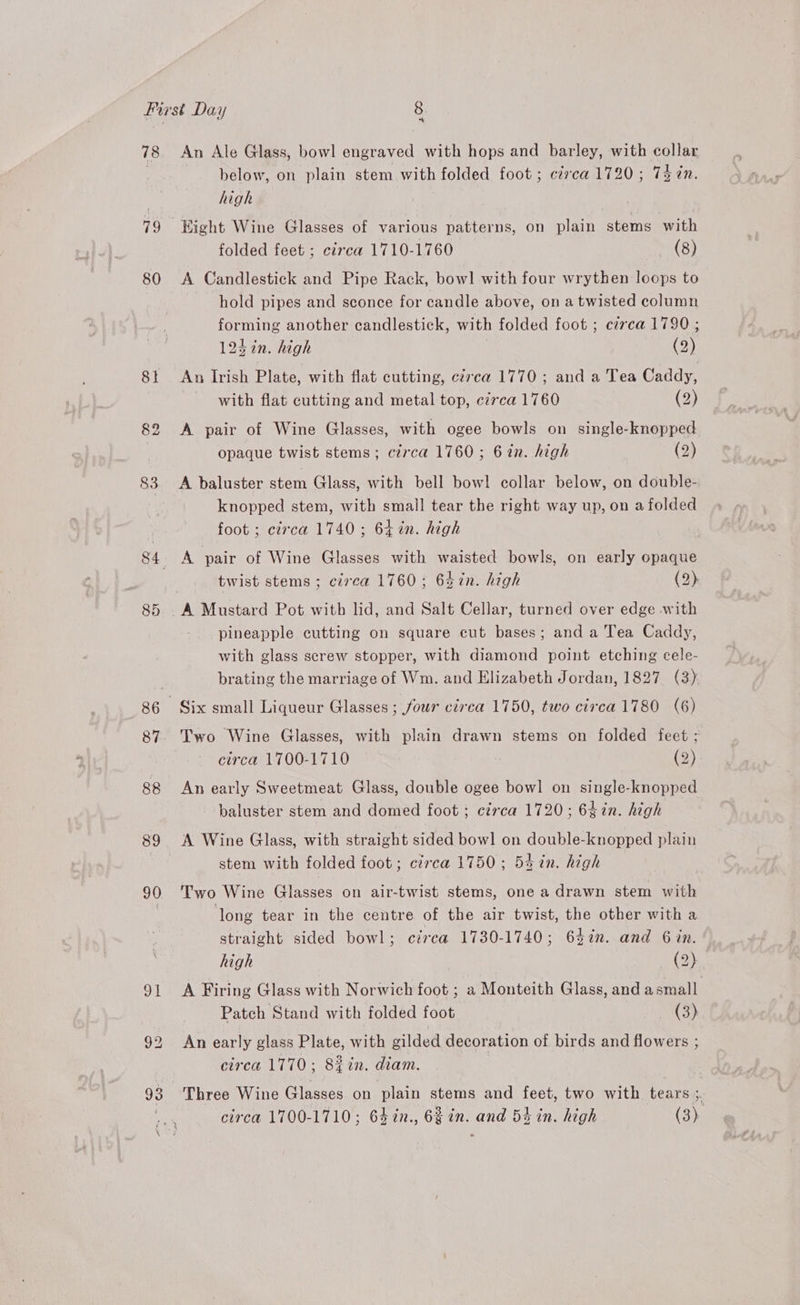 First Day 8
78 An Ale Glass, bowl engraved with hops and barley, with collar
below, on plain stem with folded foot; circa 1720; 7½ in.
high
79 Eight Wine Glasses of various patterns, on plain stems with
folded feet; circa 1710-1760 (8)
80 A Candlestick and Pipe Rack, bowl with four wrythen loops to
hold pipes and sconce for candle above, on a twisted column
forming another candlestick, with folded foot; circa 1790;
12½ in. high (2)
81 An Irish Plate, with flat cutting, circa 1770; and a Tea Caddy,
with flat cutting and metal top, circa 1760 (2)
82 A pair of Wine Glasses, with ogee bowls on single-knopped
opaque twist stems; circa 1760; 6 in. high (2)
83 A baluster stem Glass, with bell bowl collar below, on double-
knopped stem, with small tear the right way up, on a folded
foot; circa 1740; 6¼ in. high
84 A pair of Wine Glasses with waisted bowls, on early opaque
twist stems; circa 1760; 6½ in. high (2)
85 A Mustard Pot with lid, and Salt Cellar, turned over edge with
pineapple cutting on square cut bases; and a Tea Caddy,
with glass screw stopper, with diamond point etching cele-
brating the marriage of Wm. and Elizabeth Jordan, 1827 (3)
86 Six small Liqueur Glasses; four circa 1750, two circa 1780 (6)
87 Two Wine Glasses, with plain drawn stems on folded feet;
circa 1700-1710 (2)
88 An early Sweetmeat Glass, double ogee bowl on single-knopped
baluster stem and domed foot; circa 1720; 6½ in. high
89 A Wine Glass, with straight sided bowl on double-knopped plain
stem with folded foot; circa 1750; 5½ in. high
90 Two Wine Glasses on air-twist stems, one a drawn stem with
long tear in the centre of the air twist, the other with a
straight sided bowl; circa 1730-1740; 6½ in. and 6 in.
high (2)
91 A Firing Glass with Norwich foot; a Monteith Glass, and a small
Patch Stand with folded foot (3)
92 An early glass Plate, with gilded decoration of birds and flowers;
circa 1770; 8¾ in. diam.
93 Three Wine Glasses on plain stems and feet, two with tears;
circa 1700-1710; 6½ in., 6⅜ in. and 5½ in. high (3)